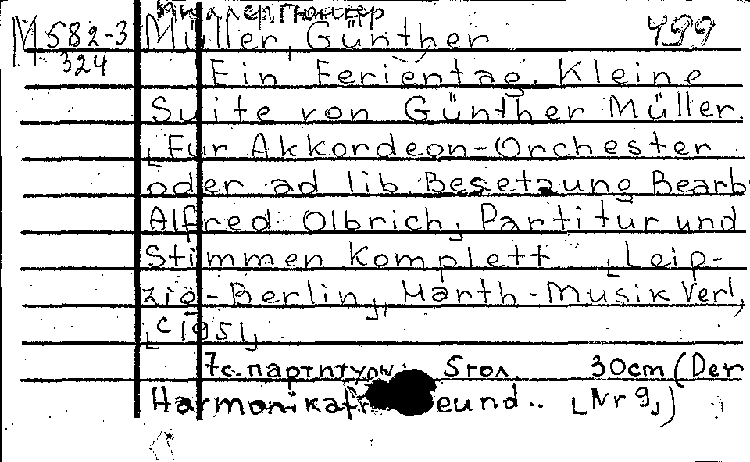 Миллер Гюнтер
М 582-3 Müller, Günther 499
324
Ein Ferientag. Kleine
Suite von Günther Müller.
[Für Akkordeon-Orchester
oder ad lib. Besetzung Bearb.
Alfred Olbrich, Partitur und
Stimmen komplett [Leip-
zig-Berlin], Harth-Musik Verl,
[c 1951]
7 с. партитуры. 5 гол. 30cm (Der
Harmonikafreund.. [Nr 9])